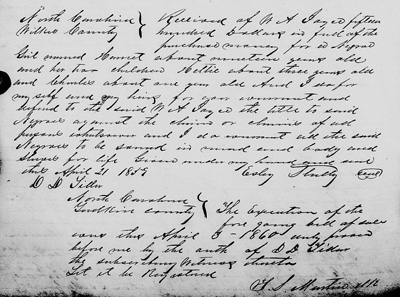 North Carolina } Received of W A Joyce fifteen
Wilkes County } hundred Dollars in full of the
purchase money for a Negro
Girl named Harriet about nineteen years old
and her two children Hettie about three years old
and about one year old And I do for
my self and my heirs for ever warrant and
defend to the said W A Joyce the title to said
Negroes against the claim or claims of all
persons whatsoever and I do warrant all the said
Negroes to be sound in mind and body and
Slaves for life Given under my hand and seal
this April 21 1859
(seal)
D D
North Carolina } The Execution of the
Yadkin County } fore going bill of sale
was this April 3 1860 duly proven
before me by the oath of D D
the subscribing Witness thereto
Let it be Registered